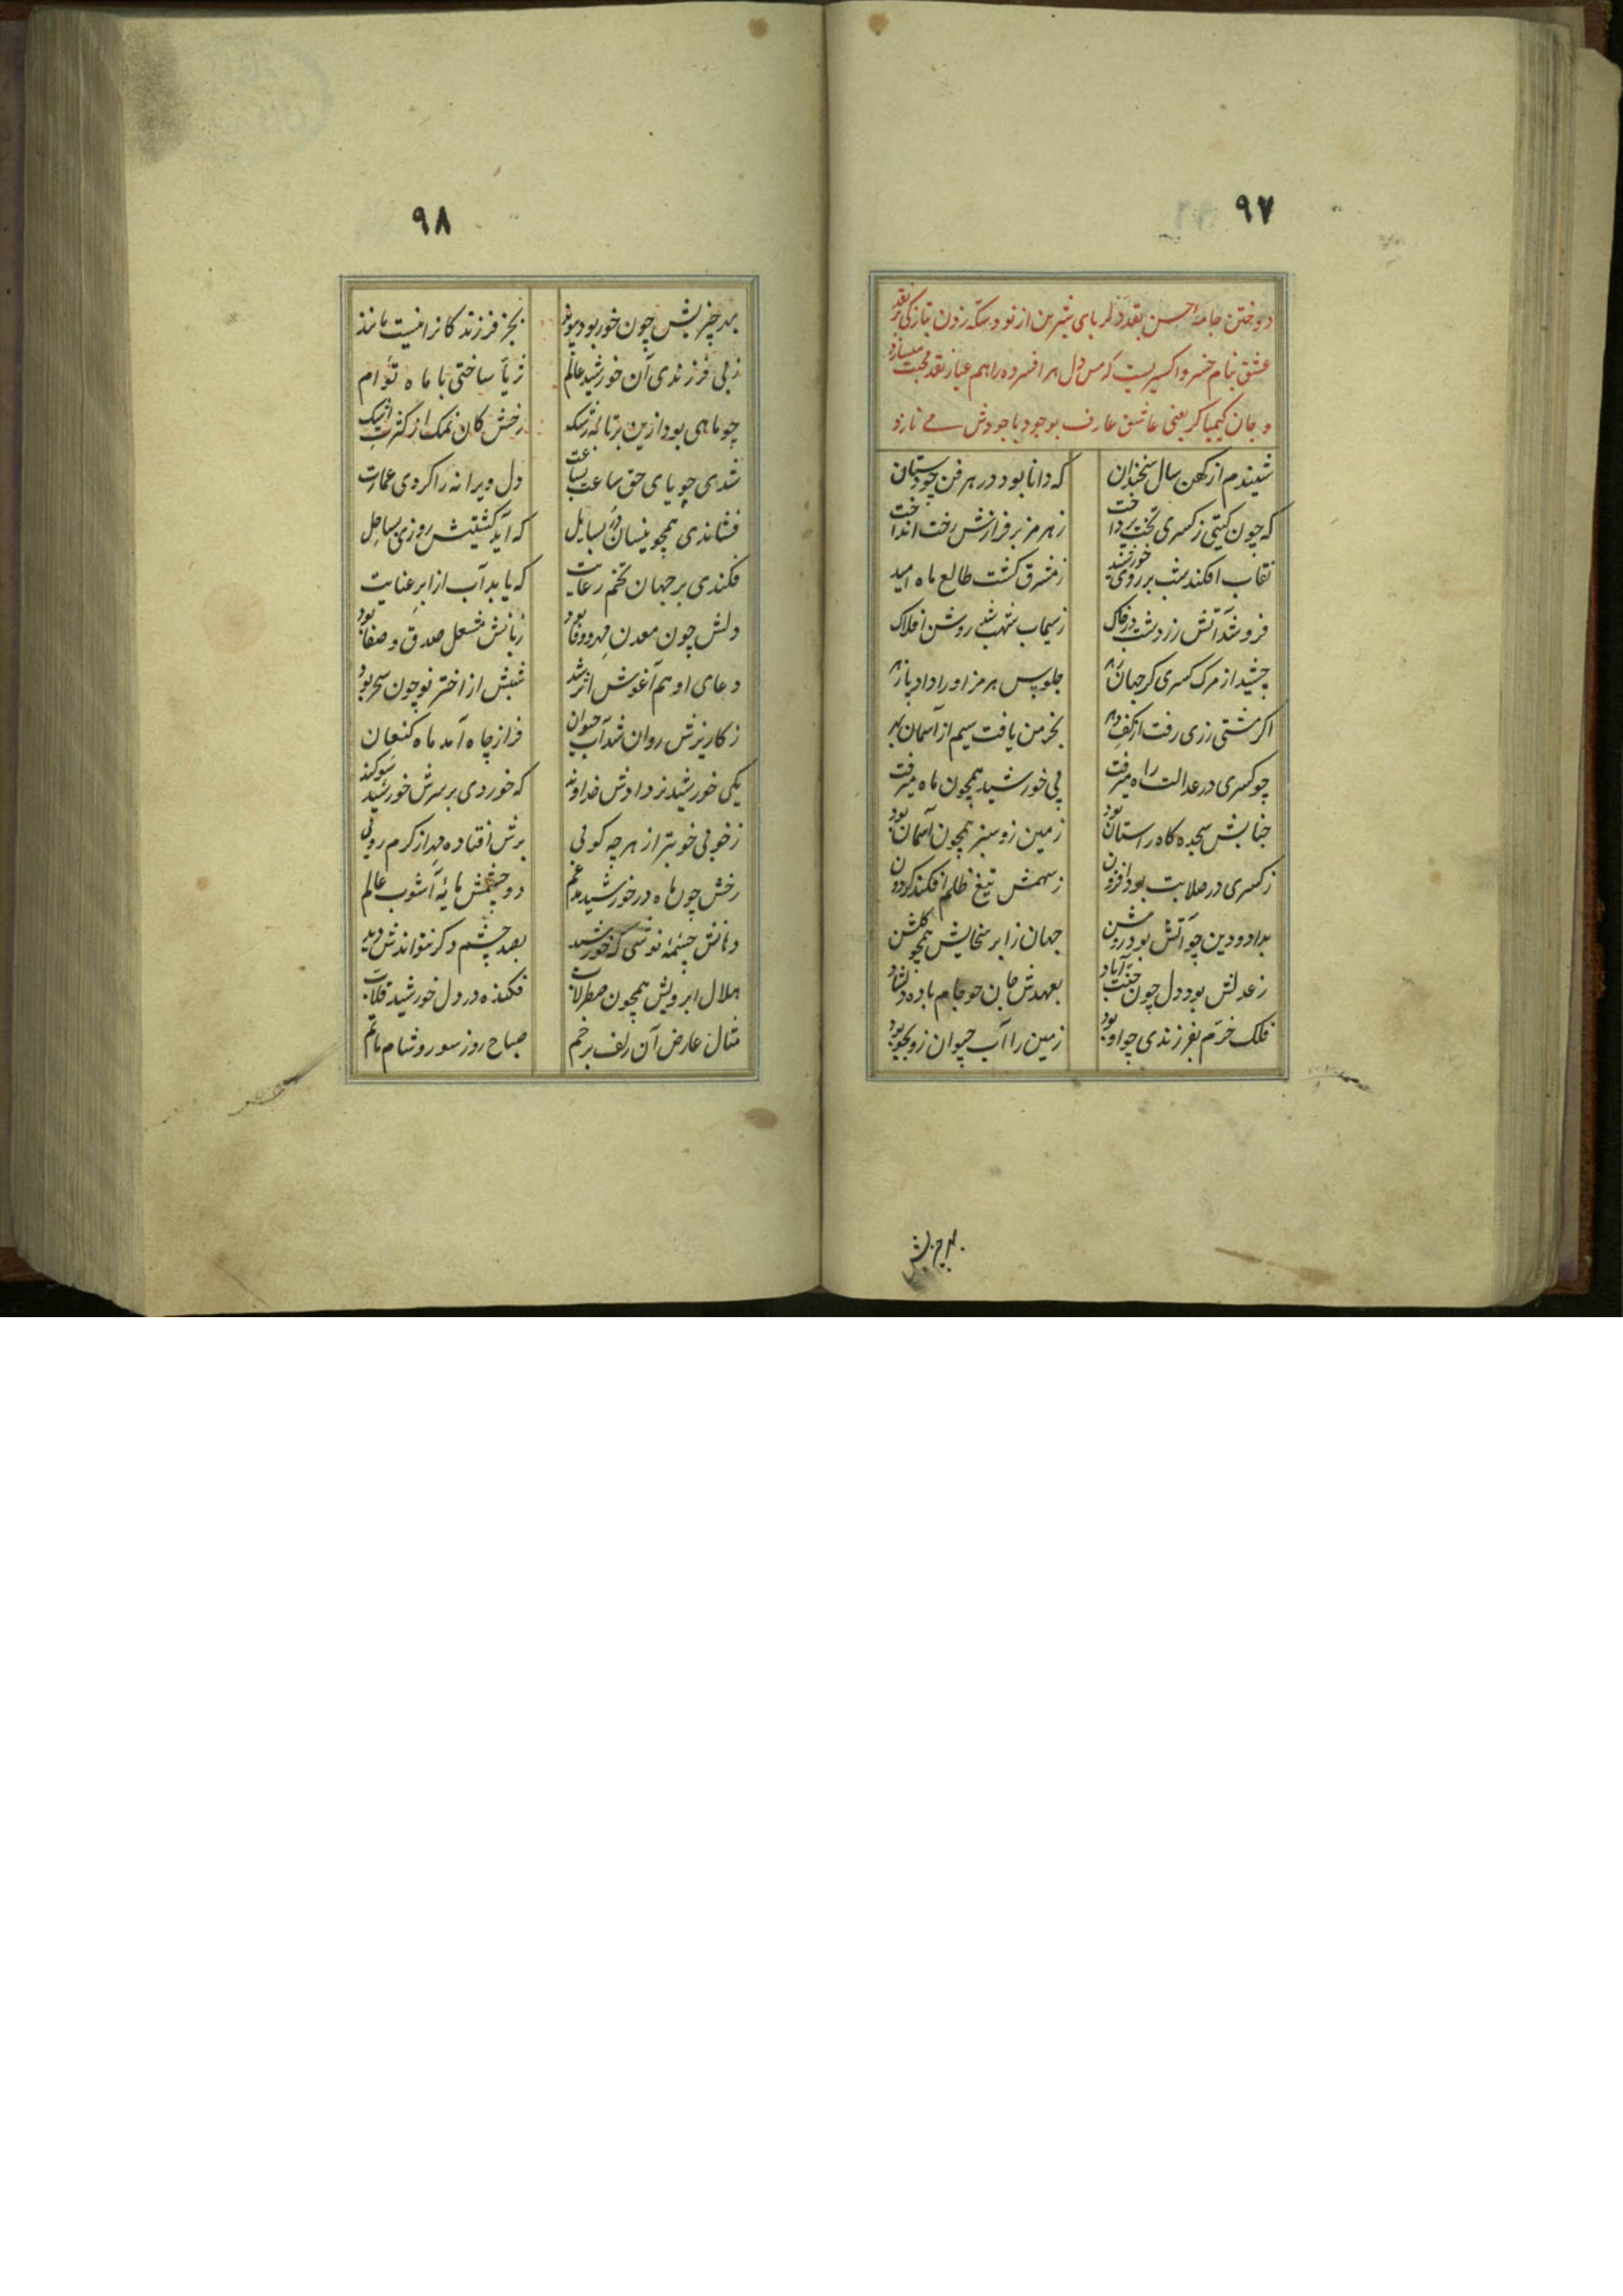 ۹۷
دوختن جامهٔ حسن بقد دلربای شیرین از نو و سکه زدن بتازکی بر نقد
عشق بنام خسرو اکسیریست که مس دل هر افسرده را هم عیار نقد محبت میسازد
و جان کیمیاکر یعنی عاشق عارف بوجود با جودش می نازد
شنیدم از کهن سال سخندان که دانا بود در هر فن چو دستان
که چون کیتی ز کسری تخت پرداخت ز هرمز بر فرازش رخت انداخت
نقاب افکند شب بر روی خورشید ز مشرق کشت طالع ماه امید
فرو شد آتش زردشت در خاک ز سیماب شهب شد روشن افلاک
چشید از مرک کسری کر جهان زهر جلوس هرمز او را داد پازهر
اکر مشتی زری رفت از کف دهر بخرمن یافت سیم از آسمان بهر
چو کسری در عدالت راه میرفت پی خورشید همچون ماه میرفت
جنابش سجده کاه راستان بود زمین زو سبز همچون آسمان بود
ز کسری در صلابت بود افزون ز سهمش تیغ ظلم افکند کردون
بداد و دین چو آتش بود روشن جهان ز ابر سخایش همچو کلشن
ز عدلش بود دل چون جنت آباد بعهدش جان چو جام باده دلشاد
فلک خرم بفرزندی چو او بود زمین را آب حیوان زو بجو بود
۹۸
بهر چیزیش چون خور بود بجز فرزند کانرا نیست مانند
ز بی فرزندی آن خورشید عالم ثریا ساختی با ماه توأم
چو ماهی بود ازین رخش کان نمک از کثرت اشک
شدی جویای حق ساعت بساعت دل ویرانه را کردی عمارت
فشاندی همچو نیسان در بسایل که آید کشتیش روزی بساحل
فکندی بر جهان تخم رعایت که یابد آب از ابر عنایت
دلش چون معدن مهر و وفا بود زبانش مشعل صدق و صفا بود
دعای او هم آغوش اثر شد شبش از اختر نو چون سحر بود
ز کاریزش روان شد آب حیوان فراز چاه آمد ماه کنعان
یکی خورشید نزد دادش خداوند که خوردی بر سرش خورشید سوکند
ز خوبی خوبتر از هر چه کوئی برش افتاده مهر از کرم روئی
رخش چون ماه در خورشید مدغم دو چشمش مایهٔ آشوب عالم
دهانش چشمهٔ نوشی که خورشید بصد چشم دکر نتواندش دید
هلال ابرویش همچون صطرلاب فکنده در دل خورشید قلاب
مثال عارض آن زلف پر خم صباح روز سور و شام ماتم